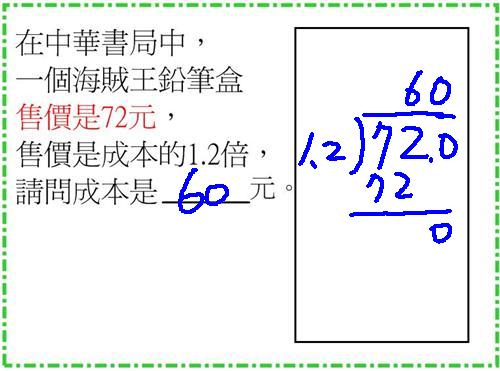 在中華書局中，
一個海賊王鉛筆盒
售價是72元，
售價是成本的1.2倍，
請問成本是 60 元。
60
1.2)72.0
72
0